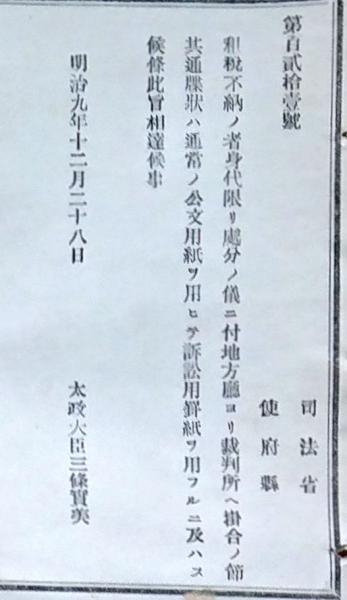 第百貳拾壹號
司法省
使府縣
租税不納ノ者身代限リ處分ノ儀ニ付地方廳ヨリ裁判所ヘ掛合ノ節
其通牒狀ハ通常ノ公文用紙ヲ用ヒテ訴訟用罫紙ヲ用フルニ及ハス
候條此旨相達候事
明治九年十二月二十八日
太政大臣三條實美